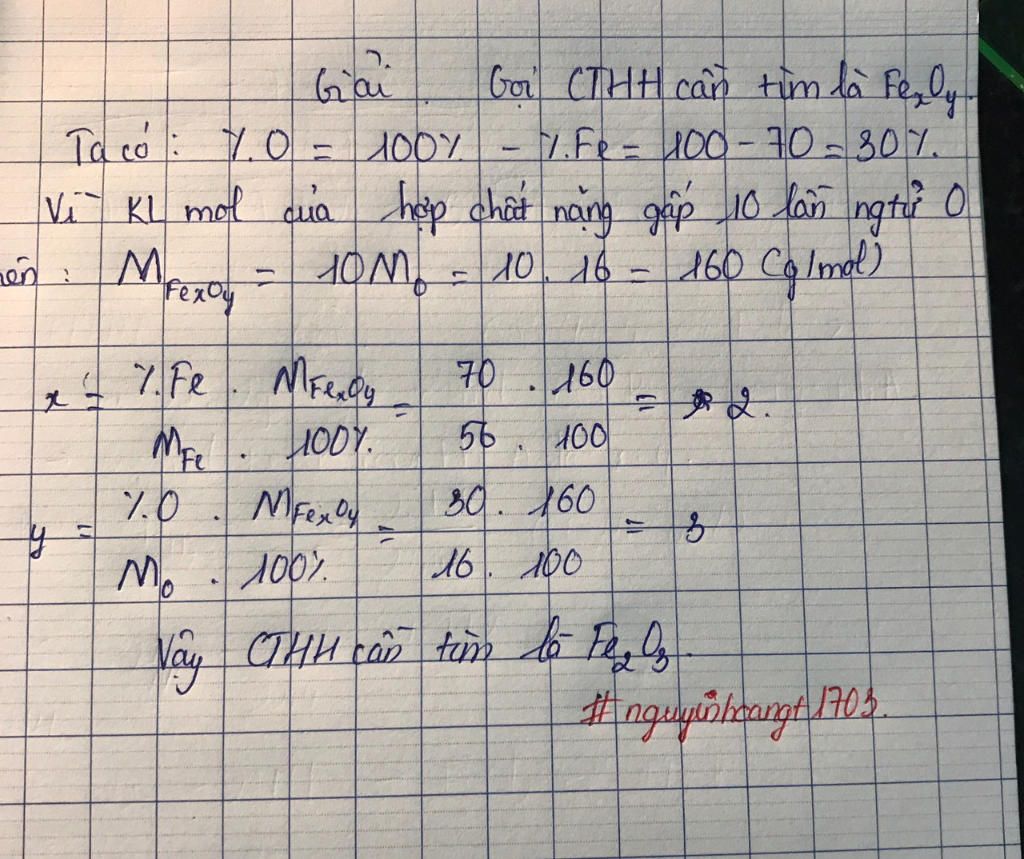 Giải. Gọi CTHH cần tìm là FeₓOᵧ.
Ta có: %O = 100% - %Fe = 100 - 70 = 30%.
Vì KL mol của hợp chất nặng gấp 10 lần ngtử O
nên: M_FeₓOᵧ = 10M_O = 10. 16 = 160 (g/mol)
x = %Fe . M_FeₓOᵧ / M_Fe . 100% = 70 . 160 / 56 . 100 = 2.
y = %O . M_FeₓOᵧ / M_O . 100% = 30 . 160 / 16 . 100 = 3
Vậy CTHH cần tìm là Fe₂O₃.